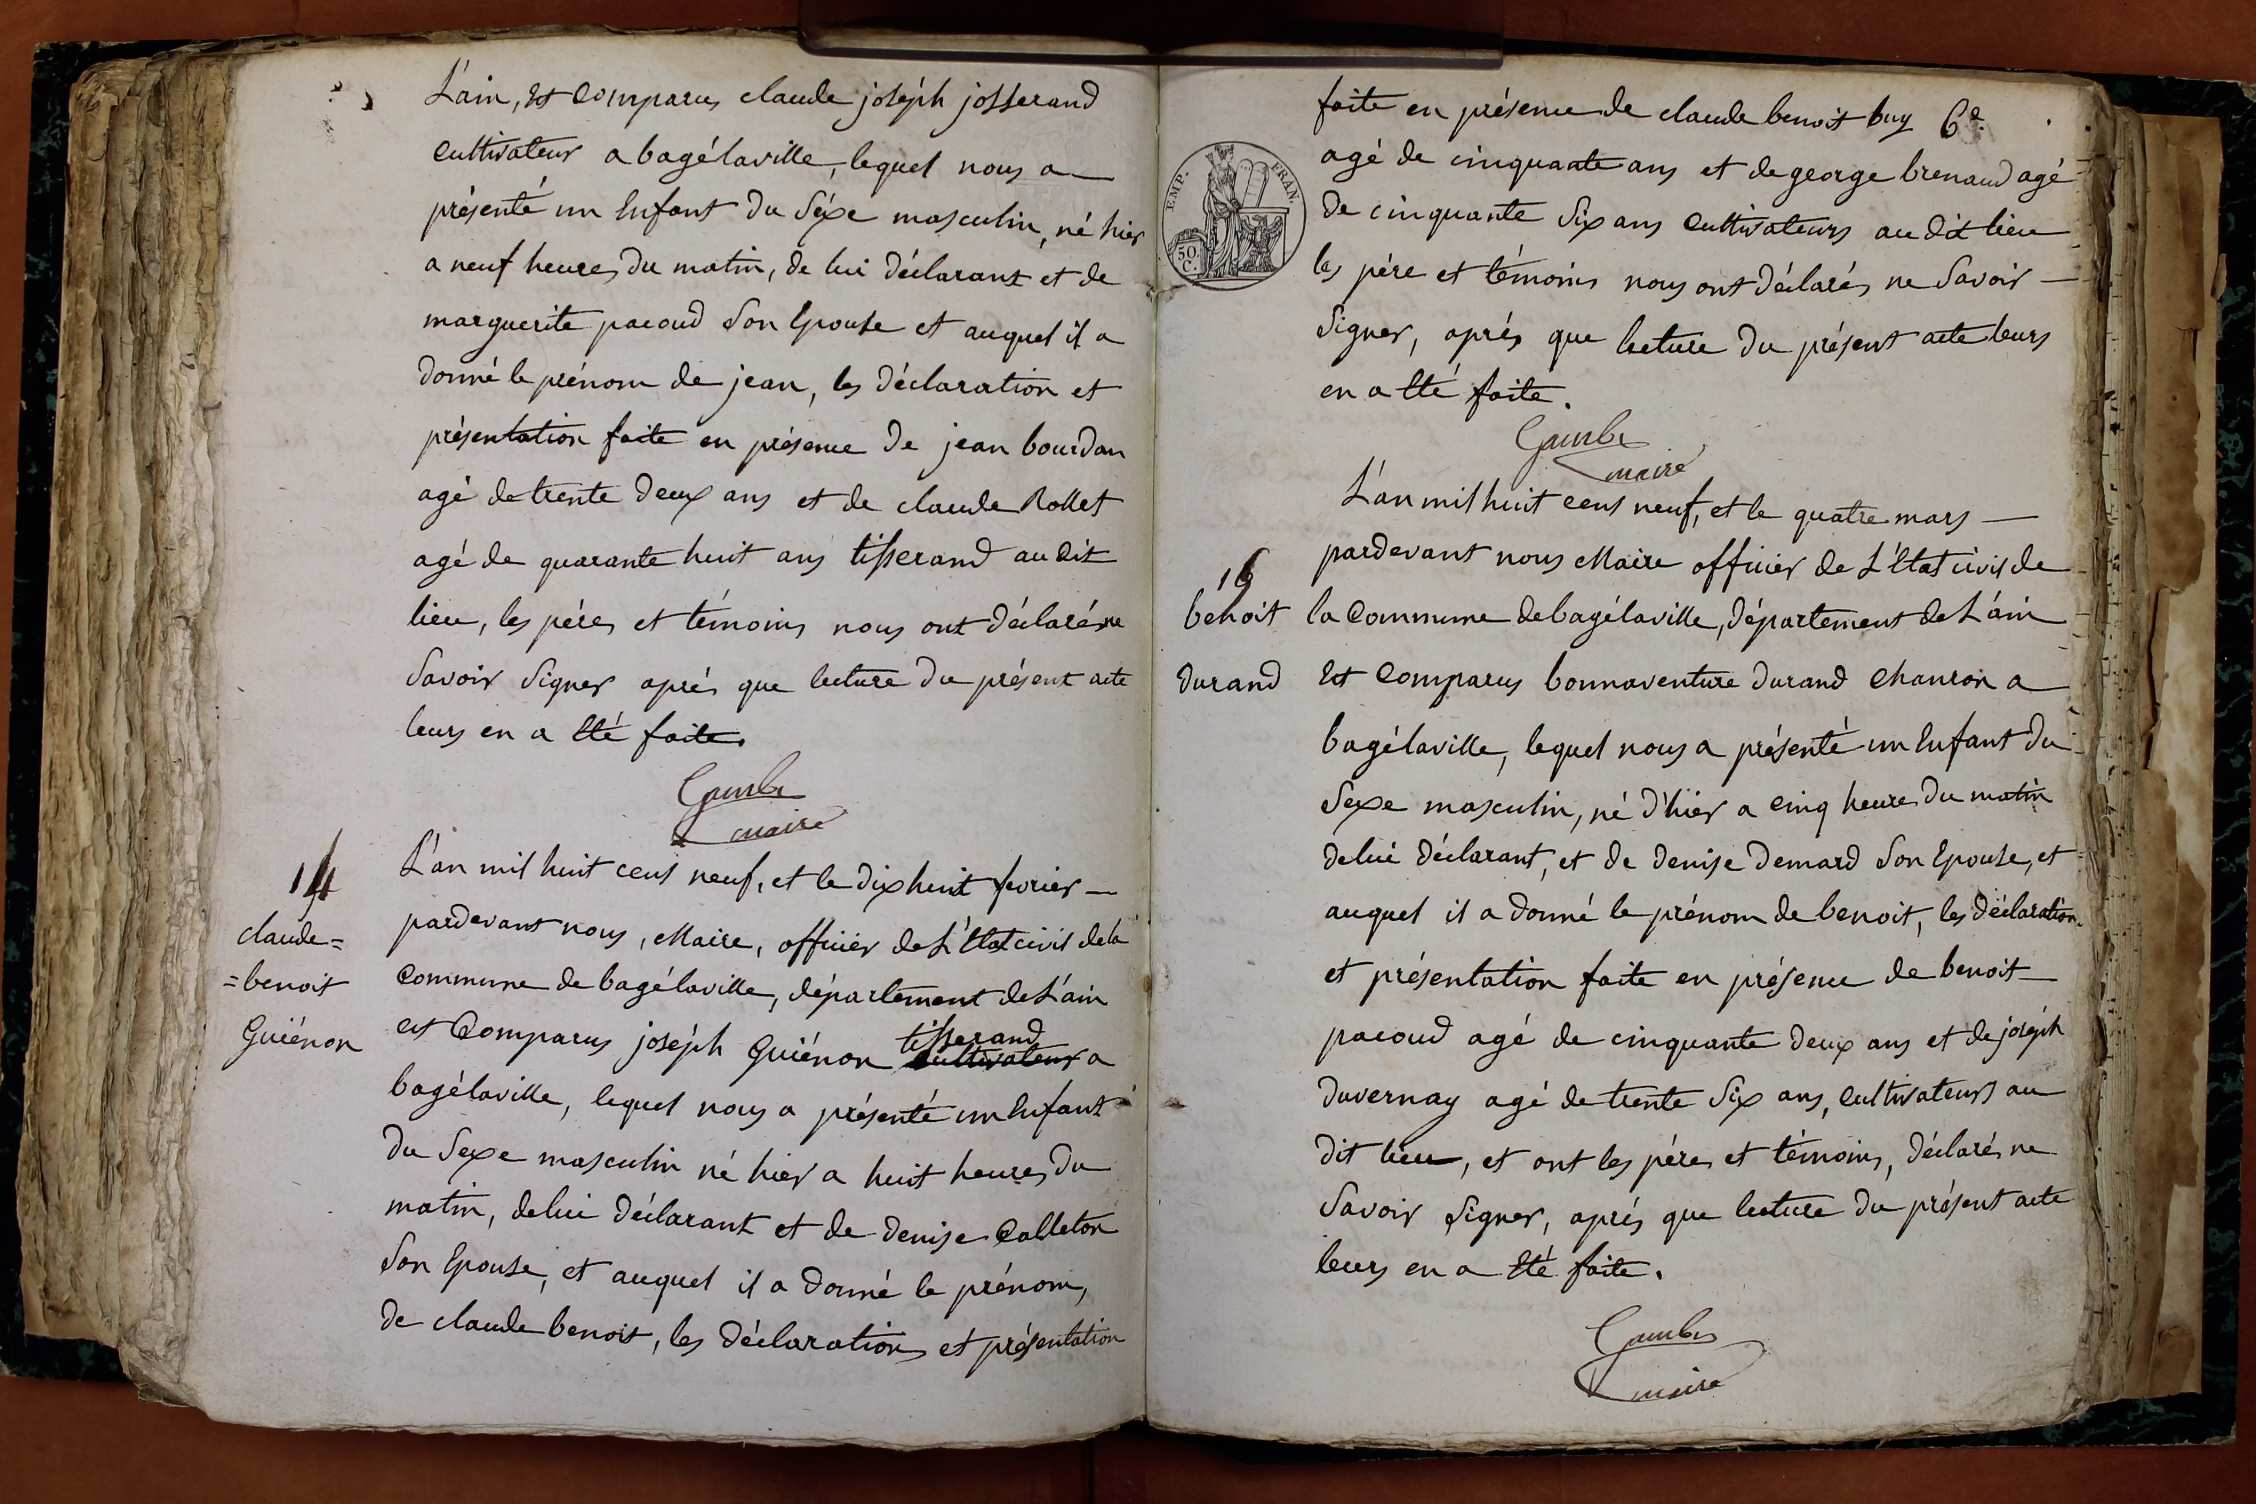 L'ain, Est Comparus claude joséph josserand
Cultivateur a bagélaville, lequel nous a
présenté un Enfant du Séxe masculin, né hier
a neuf heures du matin, de lui déclarant et de
marguerite pacoud son Epouse et auquel il a
donné le prénom de jean, les déclaration et
présentation faite en présence de jean bourdon
agé de trente deux ans et de claude Rollet
agé de quarante huit ans tisserand au dit
lieu, les péres et témoins nous ont déclarés ne
Savoir Signer aprés que lecture du présent acte
leurs en a Eté faite.
Gambe
maire
14
claude=
=benoit
Guiénon
L'an mil huit cens neuf, et le dix huit fevrier
pardevant nous, Maire, officier de L'Etat civil de la
Commune de bagélaville, département de L'ain
est Comparus joséph Guiénon tisserand
cultivateur a
bagélaville, lequel nous a présenté un Enfant
du Sexe masculin né hier a huit heures du
matin, de lui déclarant et de denise Calleton
Son Epouse, et auquel il a donné le prénom,
de claude benoit, les déclarations et présentation
EMP. FRAN.
50
C.
faite en présence de claude benoit buy 6e.
agé de cinquante ans et de george brenaud agé
de cinquante Six ans Cultivateurs au dit lieu
les pére et témoins nous ont déclarés ne Savoir
Signer, aprés que lecture du présent acte leurs
en a Eté faite.
Gambe
maire
L'an mil huit cens neuf, et le quatre mars
pardevant nous Maire officier de L'Etat civil de
benoit la Commune de bagélaville, département de L'ain
durand Est Comparus bonnaventure durand Charron a
bagélaville, lequel nous a présenté un Enfant du
Sexe masculin, né d'hier a cinq heure du matin
de lui déclarant, et de denise demard Son Epouse, et
auquel il a donné le prénom de benoit, les déclaration
et présentation faite en présence de benoit
pacoud agé de cinquante deux ans et de joséph
duvernay agé de trente Six ans, Cultivateurs au
dit lieu, et ont les péres et témoins, déclarés ne
Savoir Signer, aprés que lecture du présent acte
leurs en a Eté faite.
Gambe
maire